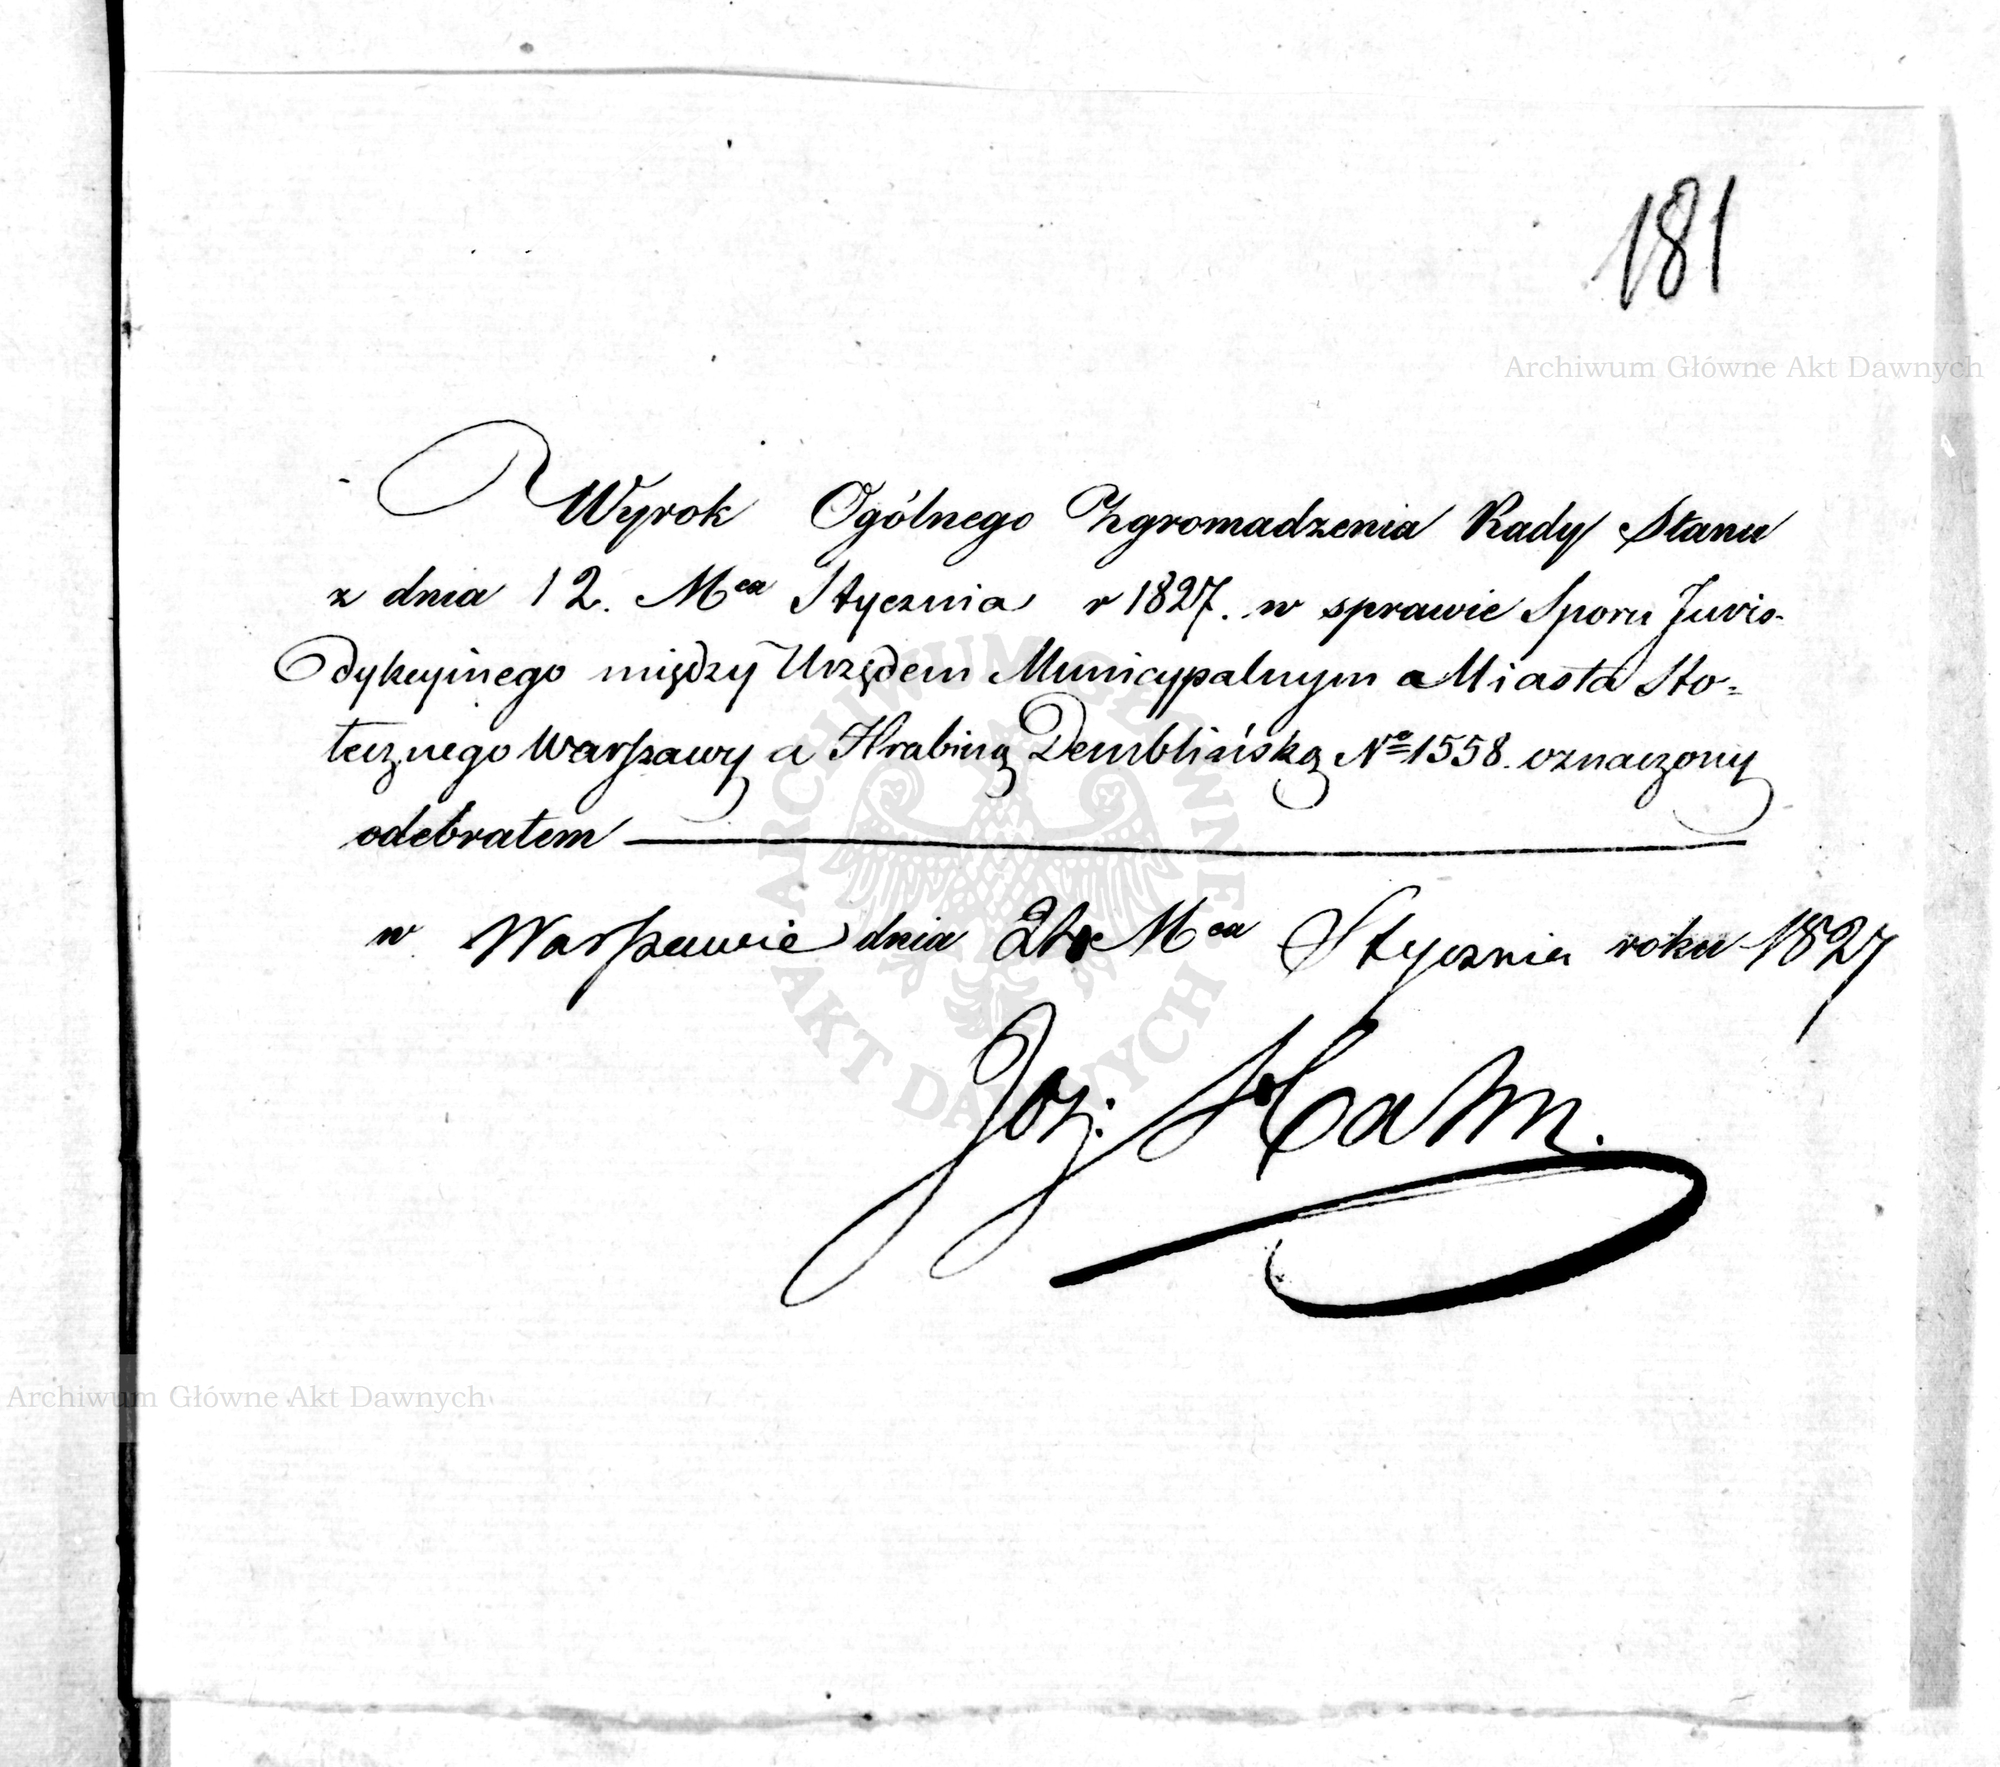 181
Archiwum Główne Akt Dawnych
Wyrok Ogólnego Zgromadzenia Rady Stanu
z dnia 12. Mca Stycznia r 1827. w sprawie Sporu Juris-
dykcyinego między Urzędem Municypalnym Miasta Sto=
łecznego Warszawy a Hrabiną Demblińską No 1558. oznaczony
odebrałem
w Warszawie dnia Mca Stycznia roku 1827
Joz:
ARCHIWUM GŁÓWNE AKT DAWNYCH
Archiwum Główne Akt Dawnych